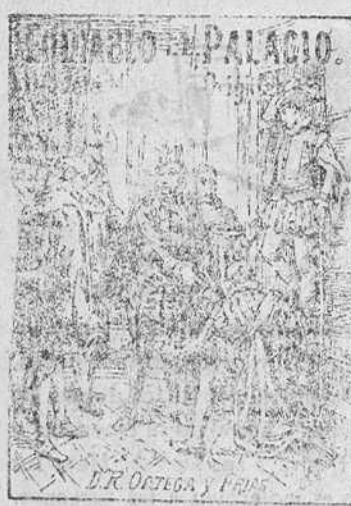 EL DIABLO EN PALACIO.
D. R. ORTEGA Y FRIAS